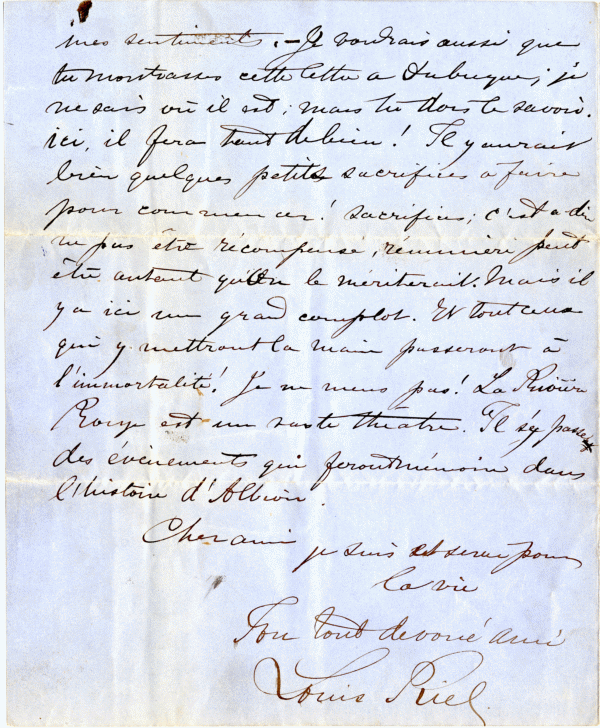 mes sentiments. – Je voudrais aussi que
tu montrasses cette lettre a Dubuque; je
ne sais où il est; mais tu dois le savoir.
ici, il fera tant de bien! Il y aurait
bien quelques petits sacrifices à faire
pour commencer! sacrifices; c'est a dire
ne pas être récompensé, rémunéré peut
être autant qu'on le mériterait. Mais il
y a ici un grand complot. Et tout ceux
qui y mettront la main passeront à
l'immortalité! Je ne mens pas! La Rivière
Rouge est un vaste théatre. Il s'y passe
des évènements qui feront mémoire dans
l'histoire d'Albion.
Cher ami je suis et serai pour
la vie
Ton tout dévoué ami
Louis Riel